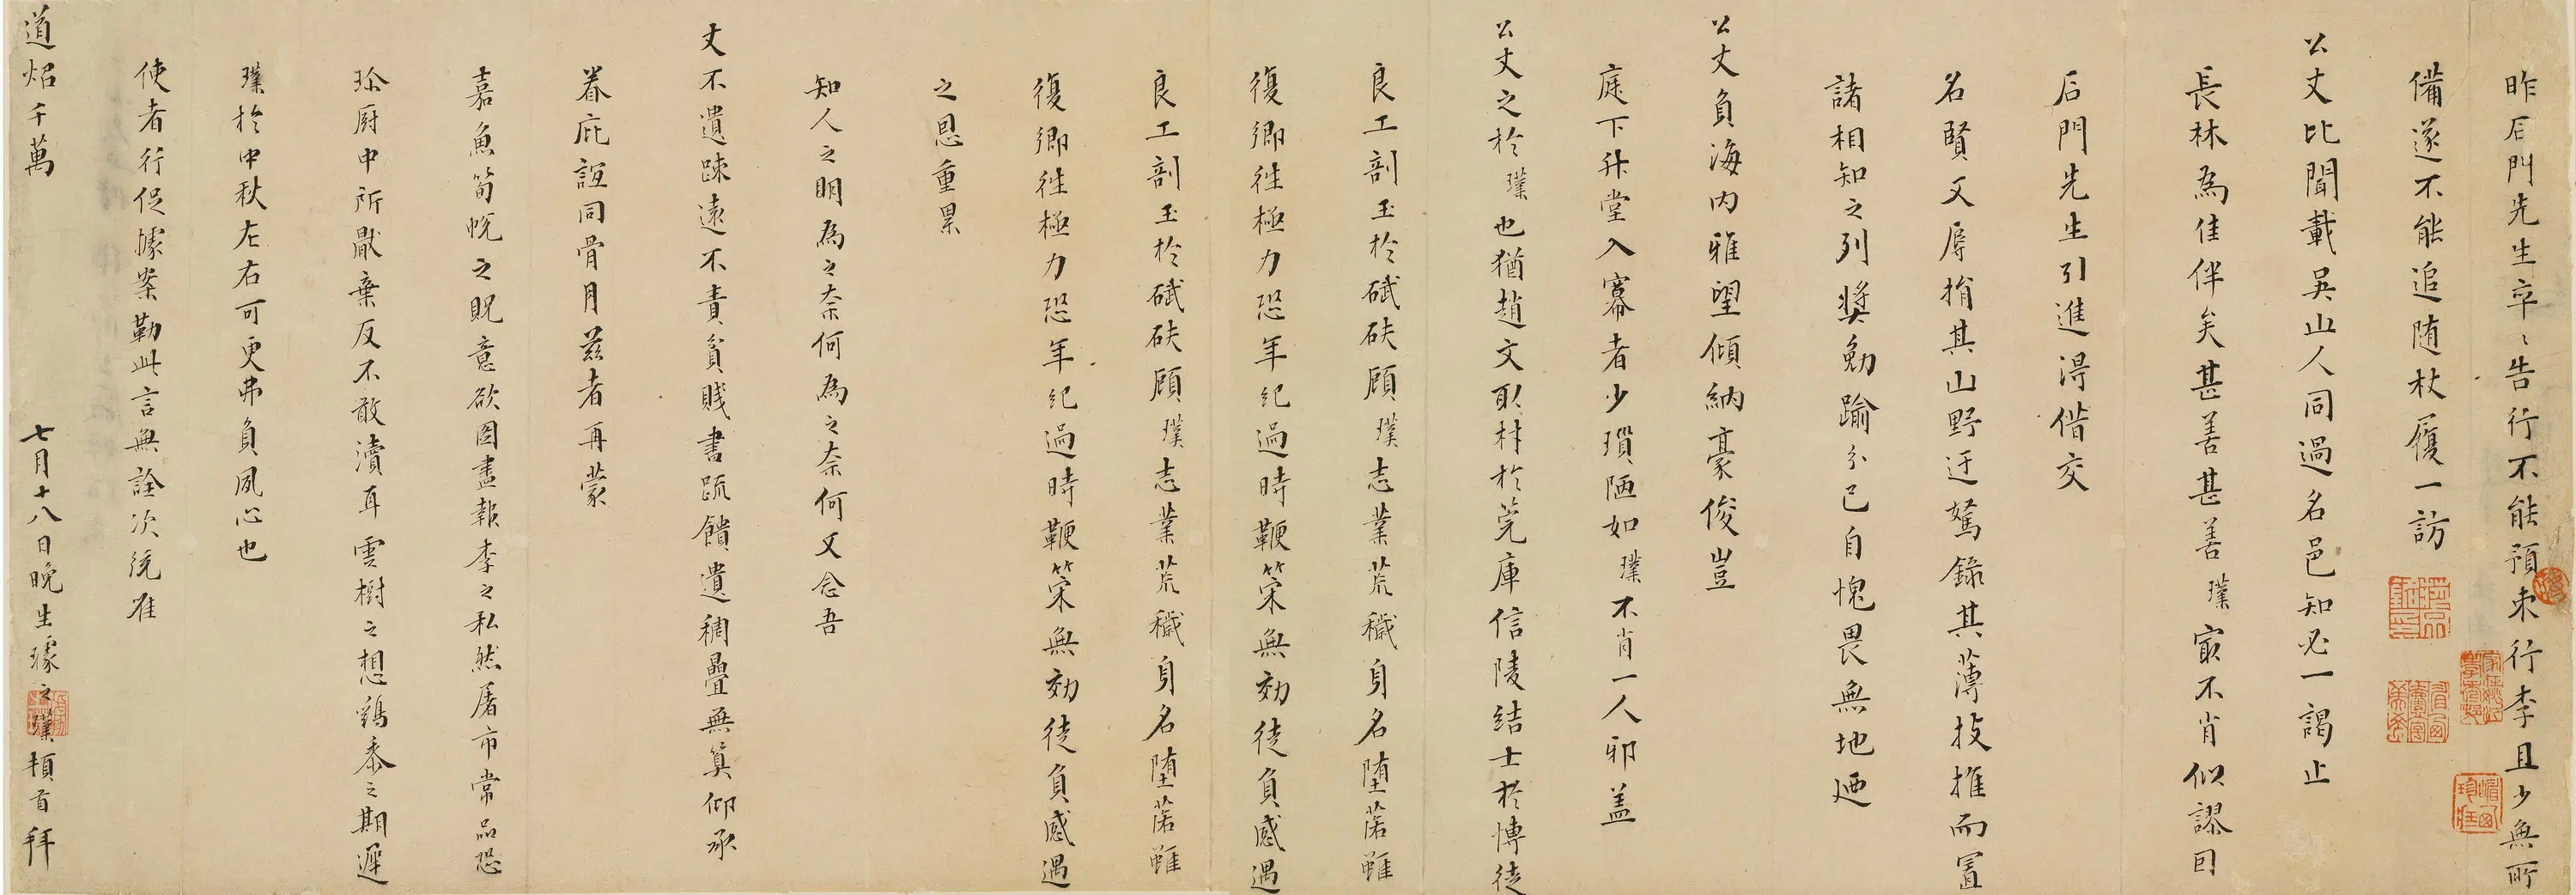 昨石門先生卒〻告行不能預束行李且少無所
備遂不能追随杖履一訪
公丈比聞載吳山人同過名邑知必一謁止
長林為佳伴矣甚善甚善璞寂不肖似謬因
石門先生引進淂偕交
名賢又辱捐其山野迂駑錄其薄技推而置
諸相知之列獎勉踰分已自愧畏無地迺
公丈負海内雅望傾納豪俊豈
庭下升堂入幕者少瑣陋如璞不肖一人邪蓋
公丈之於璞也猶趙文取材於莞庫信陵結士於愽徒
良工剖玉於碔砆顧璞志業荒穢身名堕落雖
復鄉徃極力恐年紀過時鞭策無効徒負感遇
良工剖玉於碔砆顧璞志業荒穢身名堕落雖
復鄉徃極力恐年紀過時鞭策無効徒負感遇
之恩重累
知人之明為之柰何為之柰何又念吾
丈不遺踈遠不責貧賤書疏饋遺稠疊無算仰承
眷庇誼同骨月兹者再蒙
嘉魚筍帨之貺意欲圖盡報李之私然屠市常品恐
珎厨中所厭棄反不敢瀆耳雲樹之想鷄黍之期遲
璞於中秋左右可更弗負夙心也
使者行促據案勒此言無詮次統隹
道炤千萬
七月十八日晚生璩之璞頓首拜